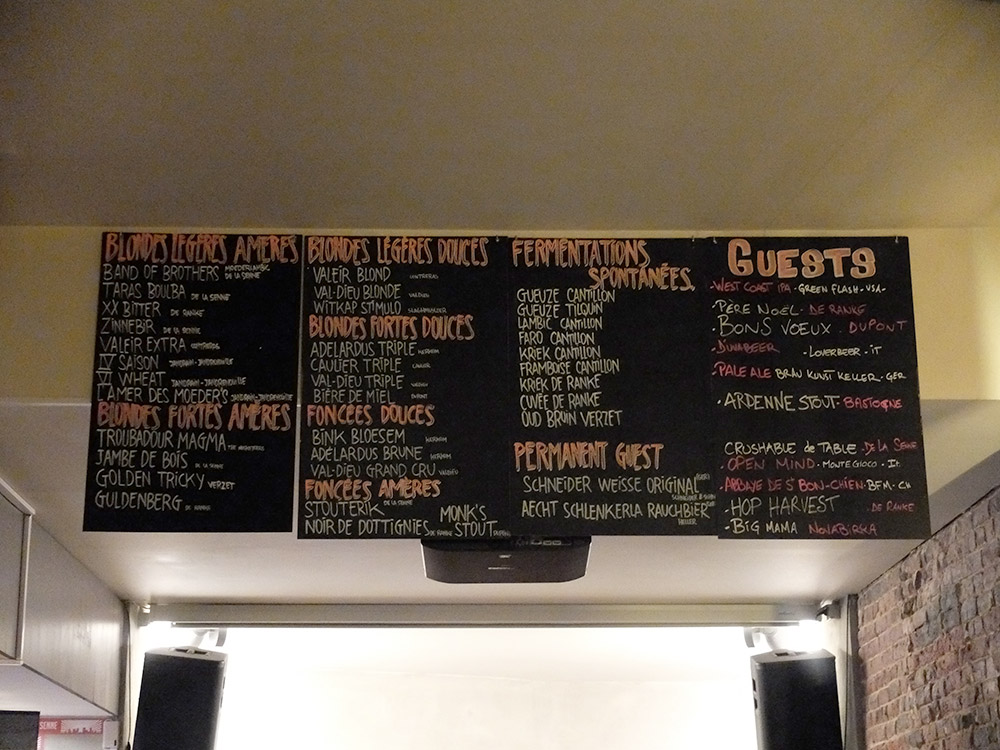 BLONDES LÉGÈRES AMÈRES
BAND OF BROTHERS MOEDERLAMBIC DE LA SENNE
TARAS BOULBA DE LA SENNE
XX BITTER DE RANKE
ZINNEBIR DE LA SENNE
VALEIR EXTRA CONTRERAS
IV SAISON JANDRAIN-JANDRENOUILLE
VI WHEAT JANDRAIN-JANDRENOUILLE
L'AMER DES MOEDER'S JANDRAIN-JANDRENOUILLE
BLONDES FORTES AMÈRES
TROUBADOUR MAGMA
JAMBE DE BOIS DE LA SENNE
GOLDEN TRICKY VERZET
GULDENBERG DE RANKE
BLONDES LÉGÈRES DOUCES
VALEIR BLOND CONTRERAS
VAL-DIEU BLONDE VALDIEU
WITKAP STIMULO SLAGHMUYLDER
BLONDES FORTES DOUCES
ADELARDUS TRIPLE KERKOM
CAULIER TRIPLE CAULIER
VAL-DIEU TRIPLE VALDIEU
BIÈRE DE MIEL DUPONT
FONCÉES DOUCES
BINK BLOESEM KERKOM
ADÉLARDUS BRUNE KERKOM
VAL-DIEU GRAND CRU VALDIEU
FONCÉES AMÈRES
STOUTERIK DE LA SENNE
NOIR DE DOTTIGNIES DE RANKE
MONK'S STOUT DUPONT
FERMENTATIONS SPONTANÉES.
GUEUZE CANTILLON
GUEUZE TILQUIN
LAMBIC CANTILLON
FARO CANTILLON
KRIEK CANTILLON
FRAMBOISE CANTILLON
KRIEK DE RANKE
CUVÉE DE RANKE
OUD BRUIN VERZET
PERMANENT GUEST
SCHNEIDER WEISSE ORIGINAL
SCHNEIDER & SOHN
AECHT SCHLENKERLA RAUCHBIER
HELLER
GUESTS
·WEST COAST IPA -GREEN FLASH -USA-
·PÈRE NOËL· DE RANKE
·BONS VOEUX · DUPONT
·D'UVABEER -LOVERBEER · IT
·PALE ALE BRAU KUNST KELLER · GER
·ARDENNE STOUT· BASTOGNE
CRUSHABLE de TABLE · DE LA SENNE
·OPEN MIND · MONTEGIOCO · It.
·ABBAYE DE St BON-CHIEN· BFM · CH
·HOP HARVEST · DE RANKE
·BIG MAMA NOVABIRRA
SENNE